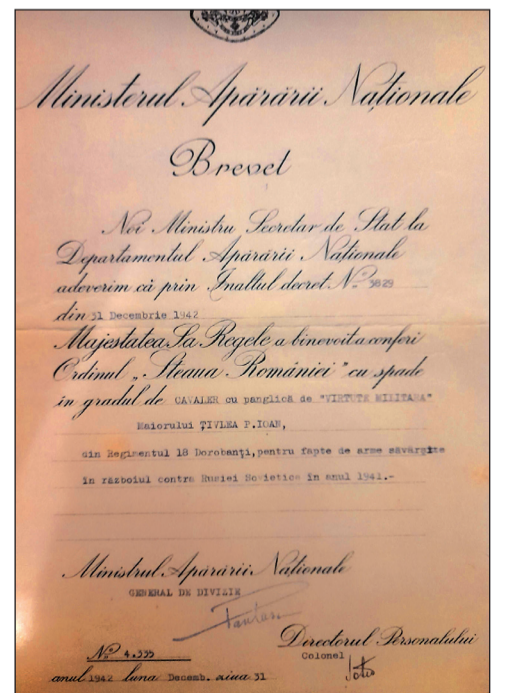 Ministerul Apărării Naționale
Brevet
Noi Ministru Secretar de Stat la
Departamentul Apărării Naționale
adeverim că prin Înaltul decret No. 3829
din 31 Decembrie 1942
Majestatea Sa Regele a binevoit a conferi
Ordinul „Steaua României" cu spade
în gradul de CAVALER cu panglică de "VIRTUTE MILITARA"
Maiorului ȚIVLEA P.IOAN,
din Regimentul 18 Dorobanți, pentru fapte de arme săvârșite
în războiul contra Rusiei Sovietice în anul 1941.-
Ministrul Apărării Naționale
GENERAL DE DIVIZIE
Directorul Personalului
Colonel
No. 4.335
anul 1942 luna Decemb. ziua 31